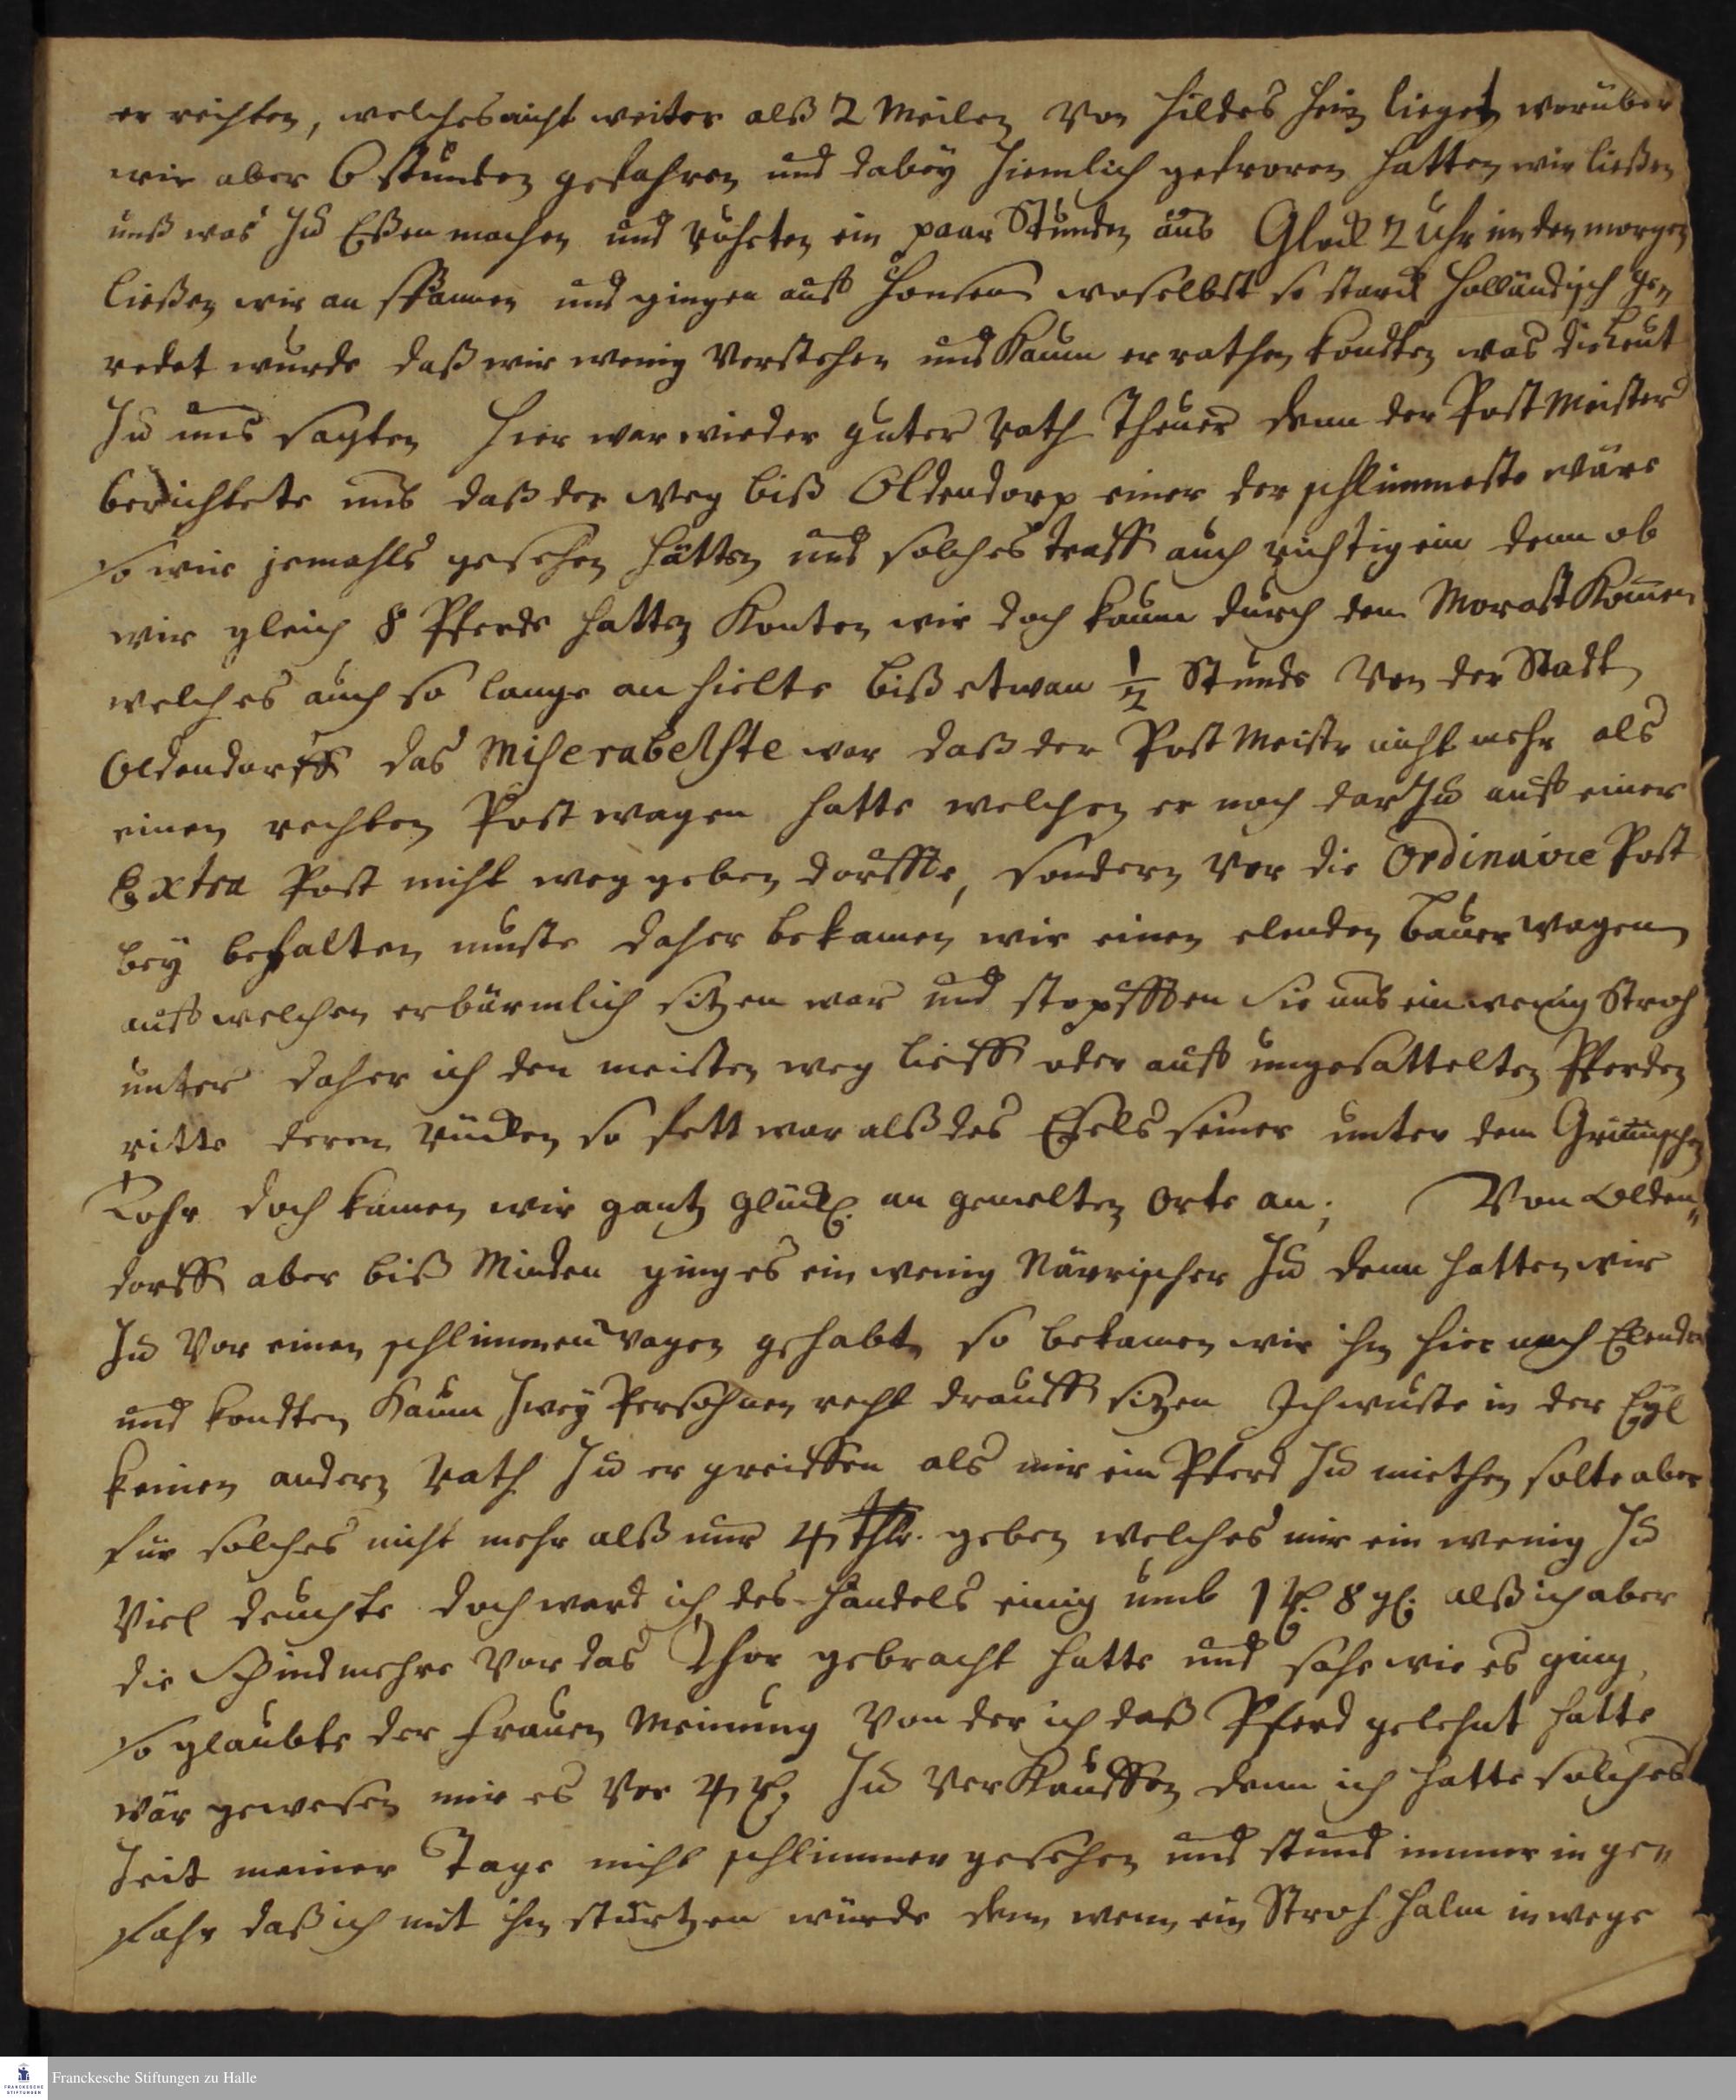 er reichten, welches nicht weiter alß 2 Meilen Von Hildes Heim lieget worüber
wir aber 6 stunden gefahren und dabey Ziemlich gefroren hatten wir ließen
unß was Zu Eßen machen und ruheten ein paar Stunden aus Glock 2 Uhr in den morgen
ließen wir an spannen und gingen auff Honsen woselbst so starck Holländisch ge„
redet wurde daß wir wenig Verstehen und Kaum er rathen kondten was die Leut
Zu uns sagten Hier war wieder guter Rath Theuer denn der Post Meister
berichtete uns daß der Weg biß Oldendorp einer der schlimmeste wäre
so wir jemahls gesehen hätten und solches traff auch richtig ein denn ob
wir gleich 8 Pferde hatten Konten wir doch kaum durch dem Morast Kom̄en
welches auch so lange an hielte biß etwan ½ Stunde Von der Stadt
Oldendorff das Miserabelste war daß der Post Meistr nicht mehr als
einen rechten Post wagen hatte welchen er noch dar Zu auff einer
Extra Post nicht weg geben dorffte, sondern Vor die Ordinaire Post
bey behalten muste daher bekamen wir einen elenden bauer Wagen
auff welchen erbärmlich sitzen war und stopfften Sie uns ein wenig Stroh
unter daher ich den meisten weg lieff oder auff ungesattelten Pferden
ritte deren Rücken so fett war alß des Esels seiner unter dem Grim̄ischen
Tohr doch kamen wir gantz glückl. an gemelten Orte an; Von Olden„
dorff aber biß Minden ging es ein wenig Närrischer Zu denn hatten wir
Zu Vor einen schlimmen Wagen gehabt so bekamen wir ihn hier noch Elender
und kondten Kaum Zwey Persohnen recht drauff sitzen Ich wuste in der Eyl
keinen andern Rath Zu er greiffen als mir ein Pferd Zu miethen solte aber
für solches nicht mehr alß nur 4 thlr. geben welches mir ein wenig Zu
Viel deuchte doch ward ich des Handels einig umb 1 rl. 8 gl. alß ich aber
die Schindmehre Vor das Thor gebracht hatte und sahe wie es ging,
so glaubte der Frauen Meinung Von der ich daß Pferd gelehnt hatte
wär gewesen mir es Vor 4 rl. Zu Verkauffen denn ich hatte solches
Zeit meiner Tage nicht schlimmer gesehen und stund immer in ge„
fahr daß ich mit ihm stürtzen würde denn wenn ein Stroh Halm in wege
Franckesche Stiftungen zu Halle